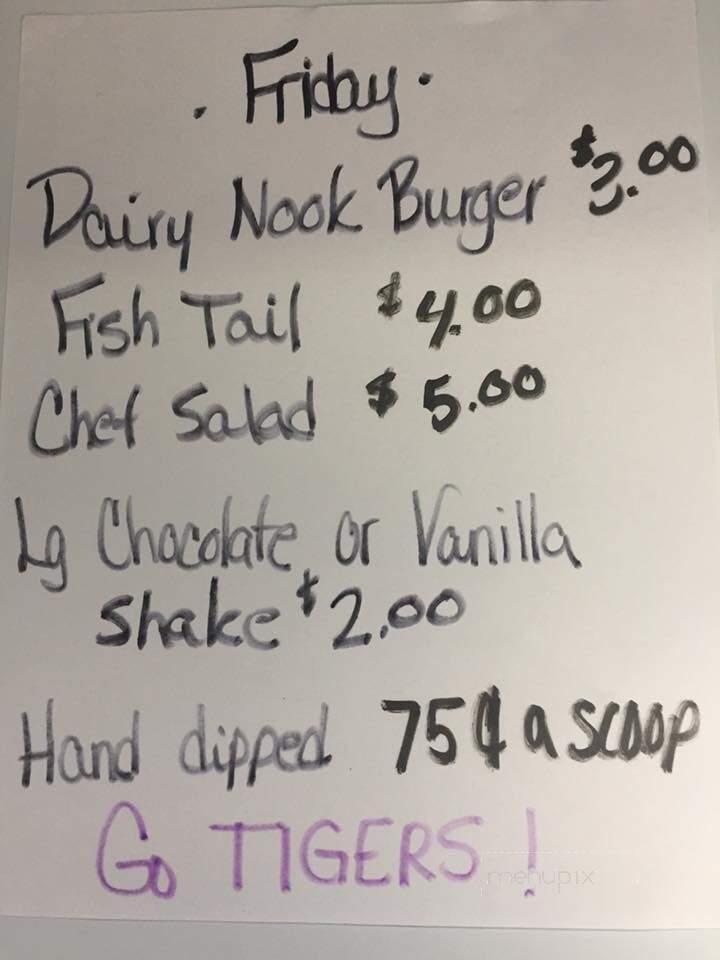 . Friday .
Dairy Nook Burger $3.00
Fish Tail $4.00
Chef Salad $5.00
Lg Chocolate or Vanilla
Shake $2.00
Hand dipped 75¢ a scoop
Go TIGERS!
menupix